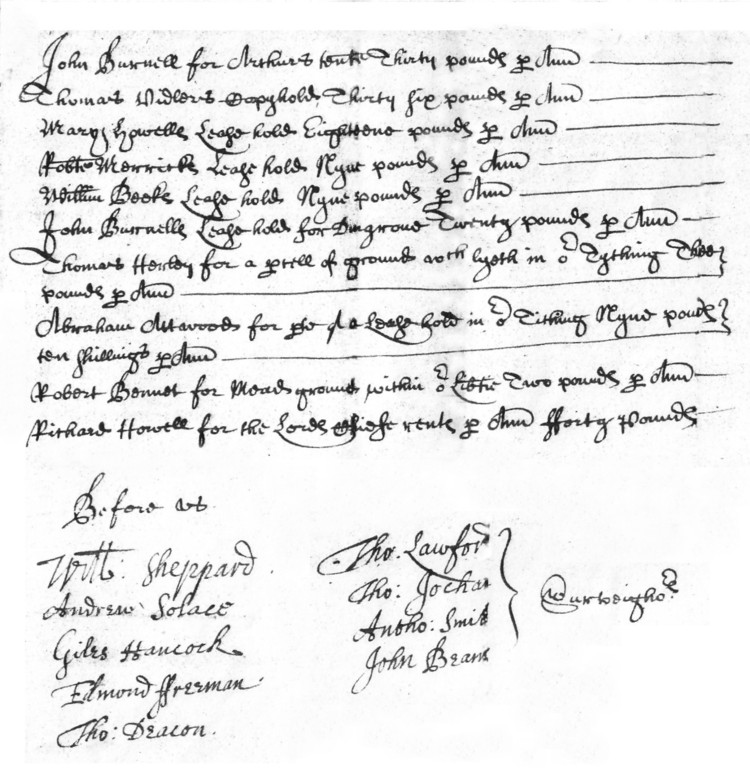 John Burnell for Arthurs tente Thirty pounds p Ann
Thomas Vidlers Copyhold Thirty six pounds p Ann
Mary Howells Lease hold Eighteene pounds p Ann
Robte Merricks Lease hold Nyne pounds p Ann
Willm Beeks Lease hold Nyne pounds p Ann
John Burnells Lease hold for Twenty pounds p Ann
Thomas Herley for a pcell of ground wch lyeth in or Tything Three
pounds p Ann
Abraham Attwoods for pte of a Lease hold in or Tithing Nyne pounds
ten shillings p Ann
Robert Bennet for Mead ground within or Two pounds p Ann
Richard Howell for the Lords chiefe rents p Ann fforty Pounds
Before us
Willm: Sheppard
Andrew Solace
Giles Hancock
Edmond ffreeman
Tho: Deacon.
Tho: Lawford
Tho:
Antho: Smit
John Beam